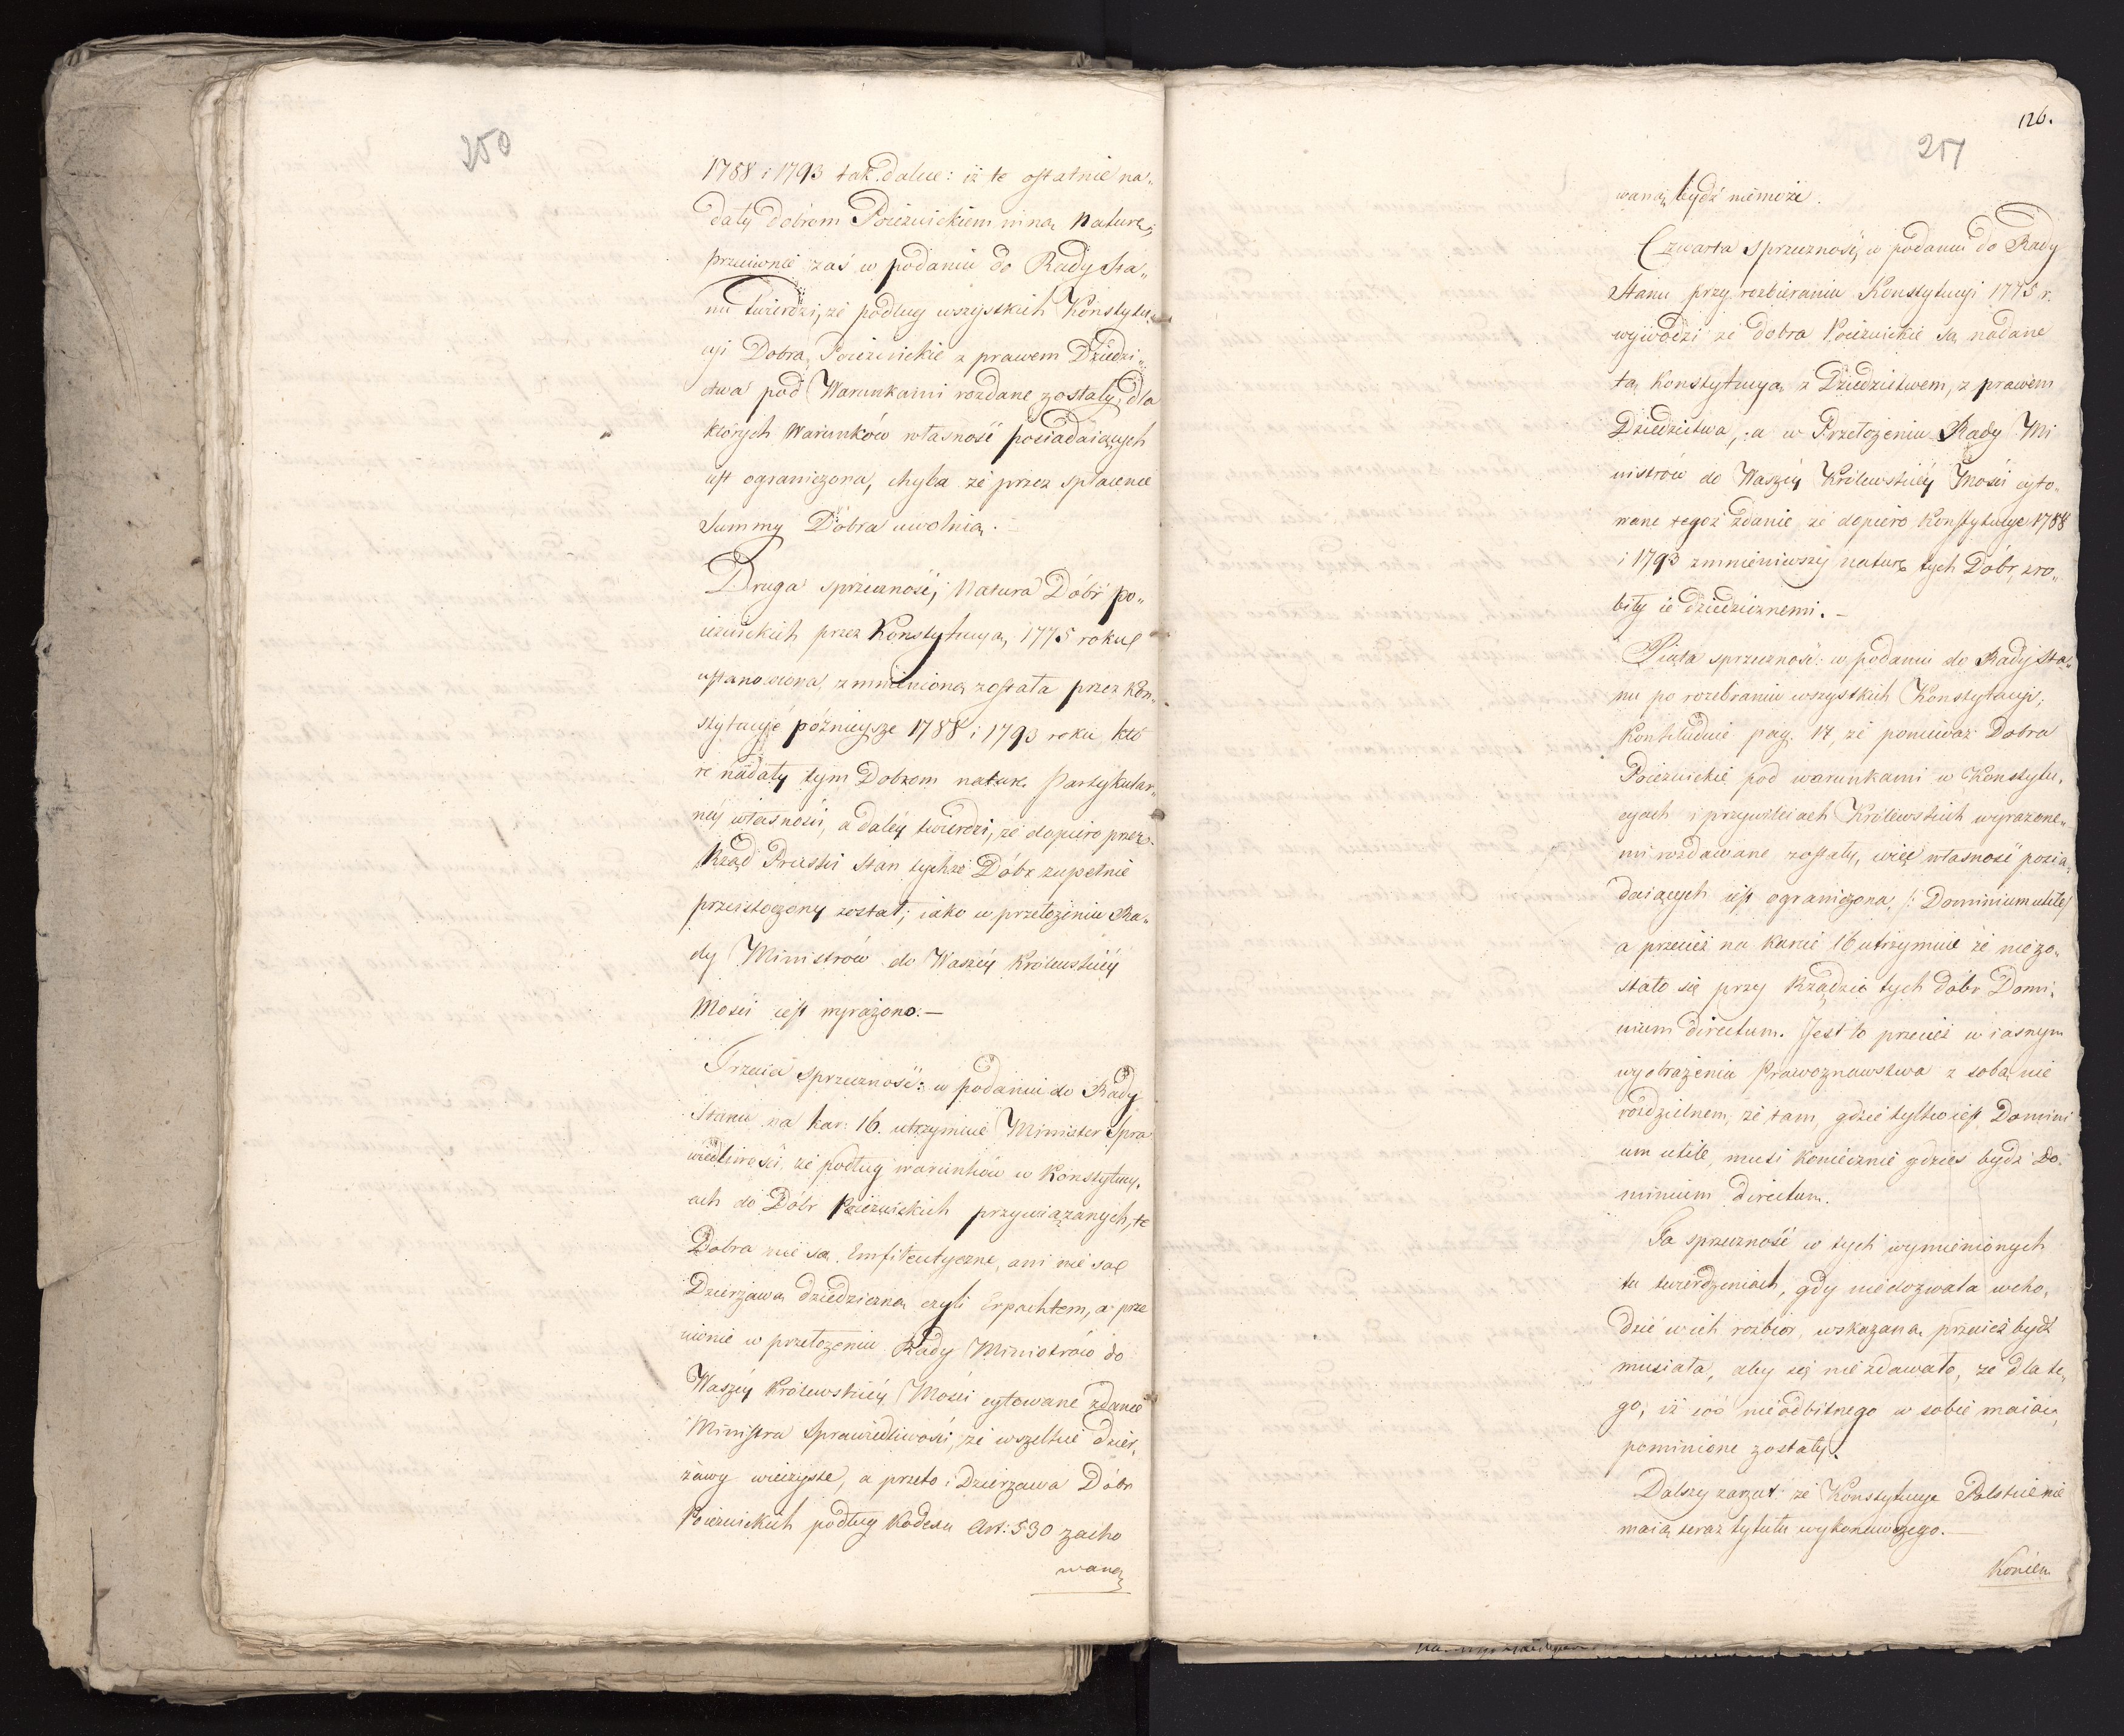 250
1788 i 1793 tak dalece: iż te ostatnie na„
dały dobrom Poiezuickiem inną Naturę,
przeciwnie zaś w podaniu do Rady Sta„
nu twierdzi, że podług wszystkich Konstytu„
cyi Dobra Poiezuickie z prawem Dziedzi„
ctwa pod Warunkami rozdane zostały, dla
których Warunków własność posiadaiących
iest ograniczona, chyba że przez spłacenie
Summy Dobra uwolnią.
Druga sprzeczność; Natura Dóbr po„
iezuickich przez Konstytucyą 1775 roku
ustanowiona, zmienioną została przez Kon„
stytucyie późnieysze 1788 i 1793 roku, któ
re nadały tym Dobrom naturę Partykular„
néy własności, a daléy twierdzi, że dopiero przez
Rząd Pruski stan tychże Dóbr zupełnie
przeistoczony został; iako w przełożeniu Ra„
dy Ministrów do Waszéy Królewskiéy
Mości iest wyrażono.—
Trzecia sprzeczność: w podaniu do Rady
Stanu na kar: 16. utrzymuie Minister Spra
wiedliwości, że podług warunków w Konstytucy„
ach do Dóbr Poiezuickich przywiązanych, te
Dobra nie są Emfiteutyczne, ani nie są
Dzierżawą dziedziczną czyli Erpachtem, a prze
ciwnie w przełożeniu Rady Ministrów do
Waszéy Królewskiéy Mości cytowane zdanie
Ministra Sprawiedliwości, że wszelkie dzier„
żawy wieczyste, a przeto i Dzierżawa Dóbr
Poiezuickich podług Kodexu Art: 530 zacho
waną
126.
251
waną bydź niemoże.
Czwarta sprzeczność, w podaniu do Rady
Stanu przy rozbieraniu Konstytucyi 1775 r.
wywodzi że dobra Poiezuickie są nadane
tą Konstytucyą z Dziedzictwem, z prawem
Dziedzictwa, a w Przełożeniu Rady Mi
nistrów do Waszéy Królewskiéy Mości cyto„
wane tegoż zdanie że dopiero Konstytucye 1788
i 1793 zmnieniwszy naturę tych Dóbr, zro„
biły ie dziedzicznemi.—
Piąta sprzeczność: w podaniu do Rady Sta„
nu po rozebraniu wszystkich Konstytucyi;
Konkluduie pag. 17, że ponieważ Dobra
Poiezuickie pod warunkami w Konstytu„
cyach i przywileiach Królewskich wyrażone„
mi rozdawane zostały, więc własność posia„
daiących iest ograniczona, /: Dominium utile/
a przecież na karcie 16 utrzymuie że niezo„
stało się przy Rządzie tych dóbr Domi„
nium directum. Jest to przecież w iasnym
wyobrażeniu Prawoznawstwa z sobą nie
rozdzielnem, że tam, gdzie tylko iest Domini
um utile, musi koniecznie gdzieś bydź Do„
minium directum.
Ta sprzeczność w tych wymienionych
tu twierdzeniach, gdy niedozwala wcho„
dzić w ich rozbiór, wskazaną przecież bydź
musiała, aby się nie zdawało, że dla te„
go, iż coś nieodbitnego w sobie maiąc,
pominione zostały.
Dalszy zarzut: że Konstytucye Polskie nie
maią teraz tytułu wykonawczego.—
Koniecz